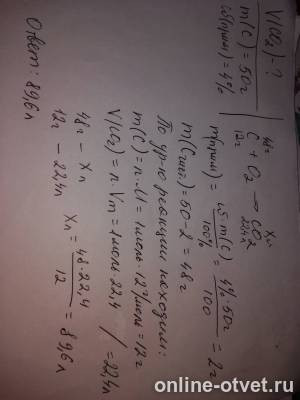 V(CO₂) - ?
m(C) = 50г
ω(прим) = 4%
48г Xл
C + O₂ → CO₂
12г 22,4л
m(прим) = ω·m(C) / 100% = 4%·50г / 100 = 2г
m(Cчист.) = 50-2 = 48г
По ур-ю реакции находим:
m(C) = n·M = 1моль·12г/моль = 12г
V(CO₂) = n·Vm = 1моль·22,4 / = 22,4л
48г - Xл
12г - 22,4л Xл = 48·22,4 / 12 = 89,6л
Ответ: 89,6л
online-otvet.ru